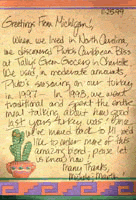 11-25-99
Greetings From Michigan!
When we lived in North Carolina,
we discovered Pluto's Caribbean Bliss
at Tally's Green Grocery in Charlotte.
We used, in moderate amounts,
Pluto's seasoning on our turkey
in 1997. In 1998, we went
traditional and spent the entire
meal talking about how good
last years turkey was! Since
we've moved back to MI and
like to order more of this
amazing blend, please let
us know how
Many Thanks,